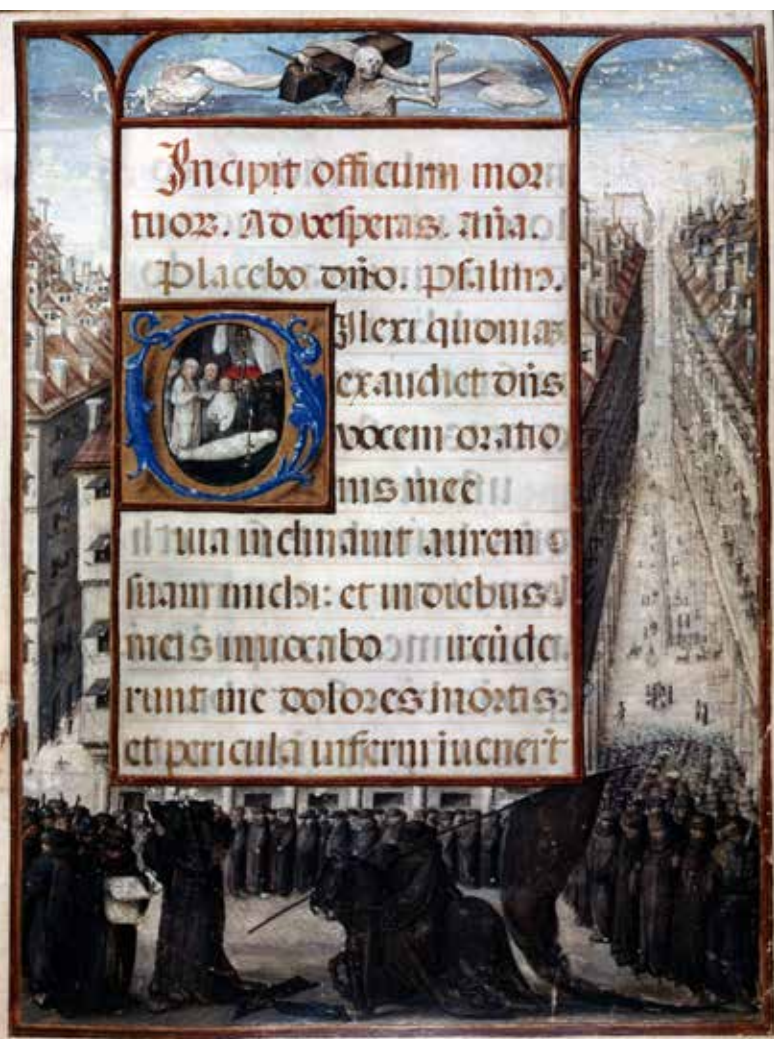 Incipit officium mor
tuor. Ad vesperas. Aña.
Placebo dño. Psalm9.
Ilexi quoniaz
exaudiet dñs
vocem oratio
nis mee
uia inclinavit aurem
suam michi: et in diebus
meis invocabo ircũde
runt me dolores mortis
et pericula inferni iuenert